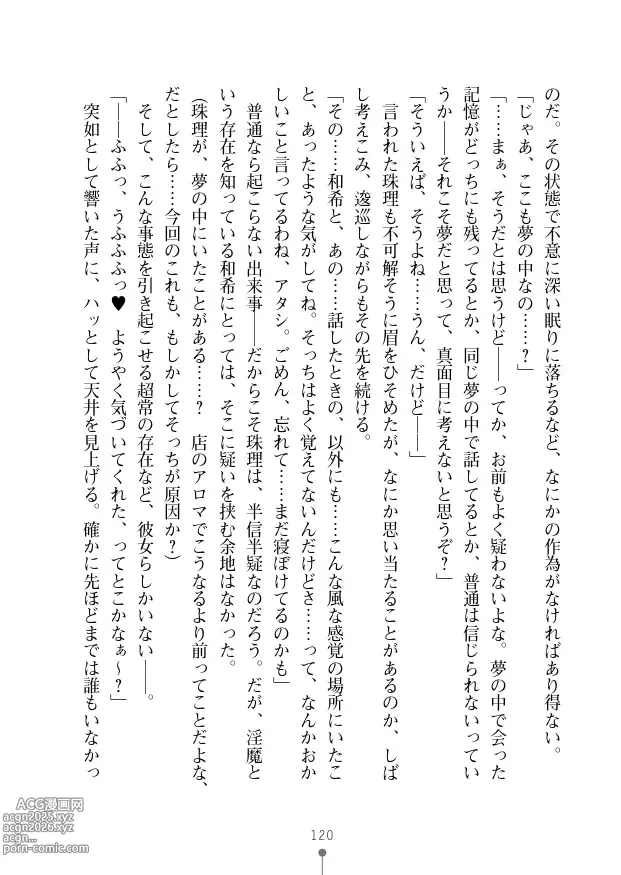 のだ。その状態で不意に深い眠りに落ちるなど、なにかの作為がなければあり得ない。
「じゃあ、ここも夢の中なの……？」
「……まぁ、そうだとは思うけど――ってか、お前もよく疑わないよな。夢の中で会った
記憶がどっちにも残ってるとか、同じ夢の中で話してるとか、普通は信じられないってい
うか――それこそ夢だと思って、真面目に考えないと思うぞ？」
「そういえば、そうよね……うん、だけど――」
言われた珠理も不可解そうに眉をひそめたが、なにか思い当たることがあるのか、しば
し考えこみ、逡巡しながらもその先を続ける。
「その……和希と、あの……話したときの、以外にも……こんな風な感覚の場所にいたこ
と、あったような気がしてね。そっちはよく覚えてないんだけどさ……って、なんかおか
しいこと言ってるわね、アタシ。ごめん、忘れて……まだ寝ぼけてるのかも」
普通なら起こらない出来事――だからこそ珠理は、半信半疑なのだろう。だが、淫魔と
いう存在を知っている和希にとっては、そこに疑いを挟む余地はなかった。
（珠理が、夢の中にいたことがある……？　店のアロマでこうなるより前ってことだよな、
だとしたら……今回のこれも、もしかしてそっちが原因か？）
そして、こんな事態を引き起こせる超常の存在など、彼女らしかいない――。
「――ふふっ、うふふふっ♥　ようやく気づいてくれた、ってとこかなぁ～？」
突如として響いた声に、ハッとして天井を見上げる。確かに先ほどまでは誰もいなかっ
120
ACG漫画网
acgn2025.xyz
acgn2026.xyz
acgn...
porn-comic.com